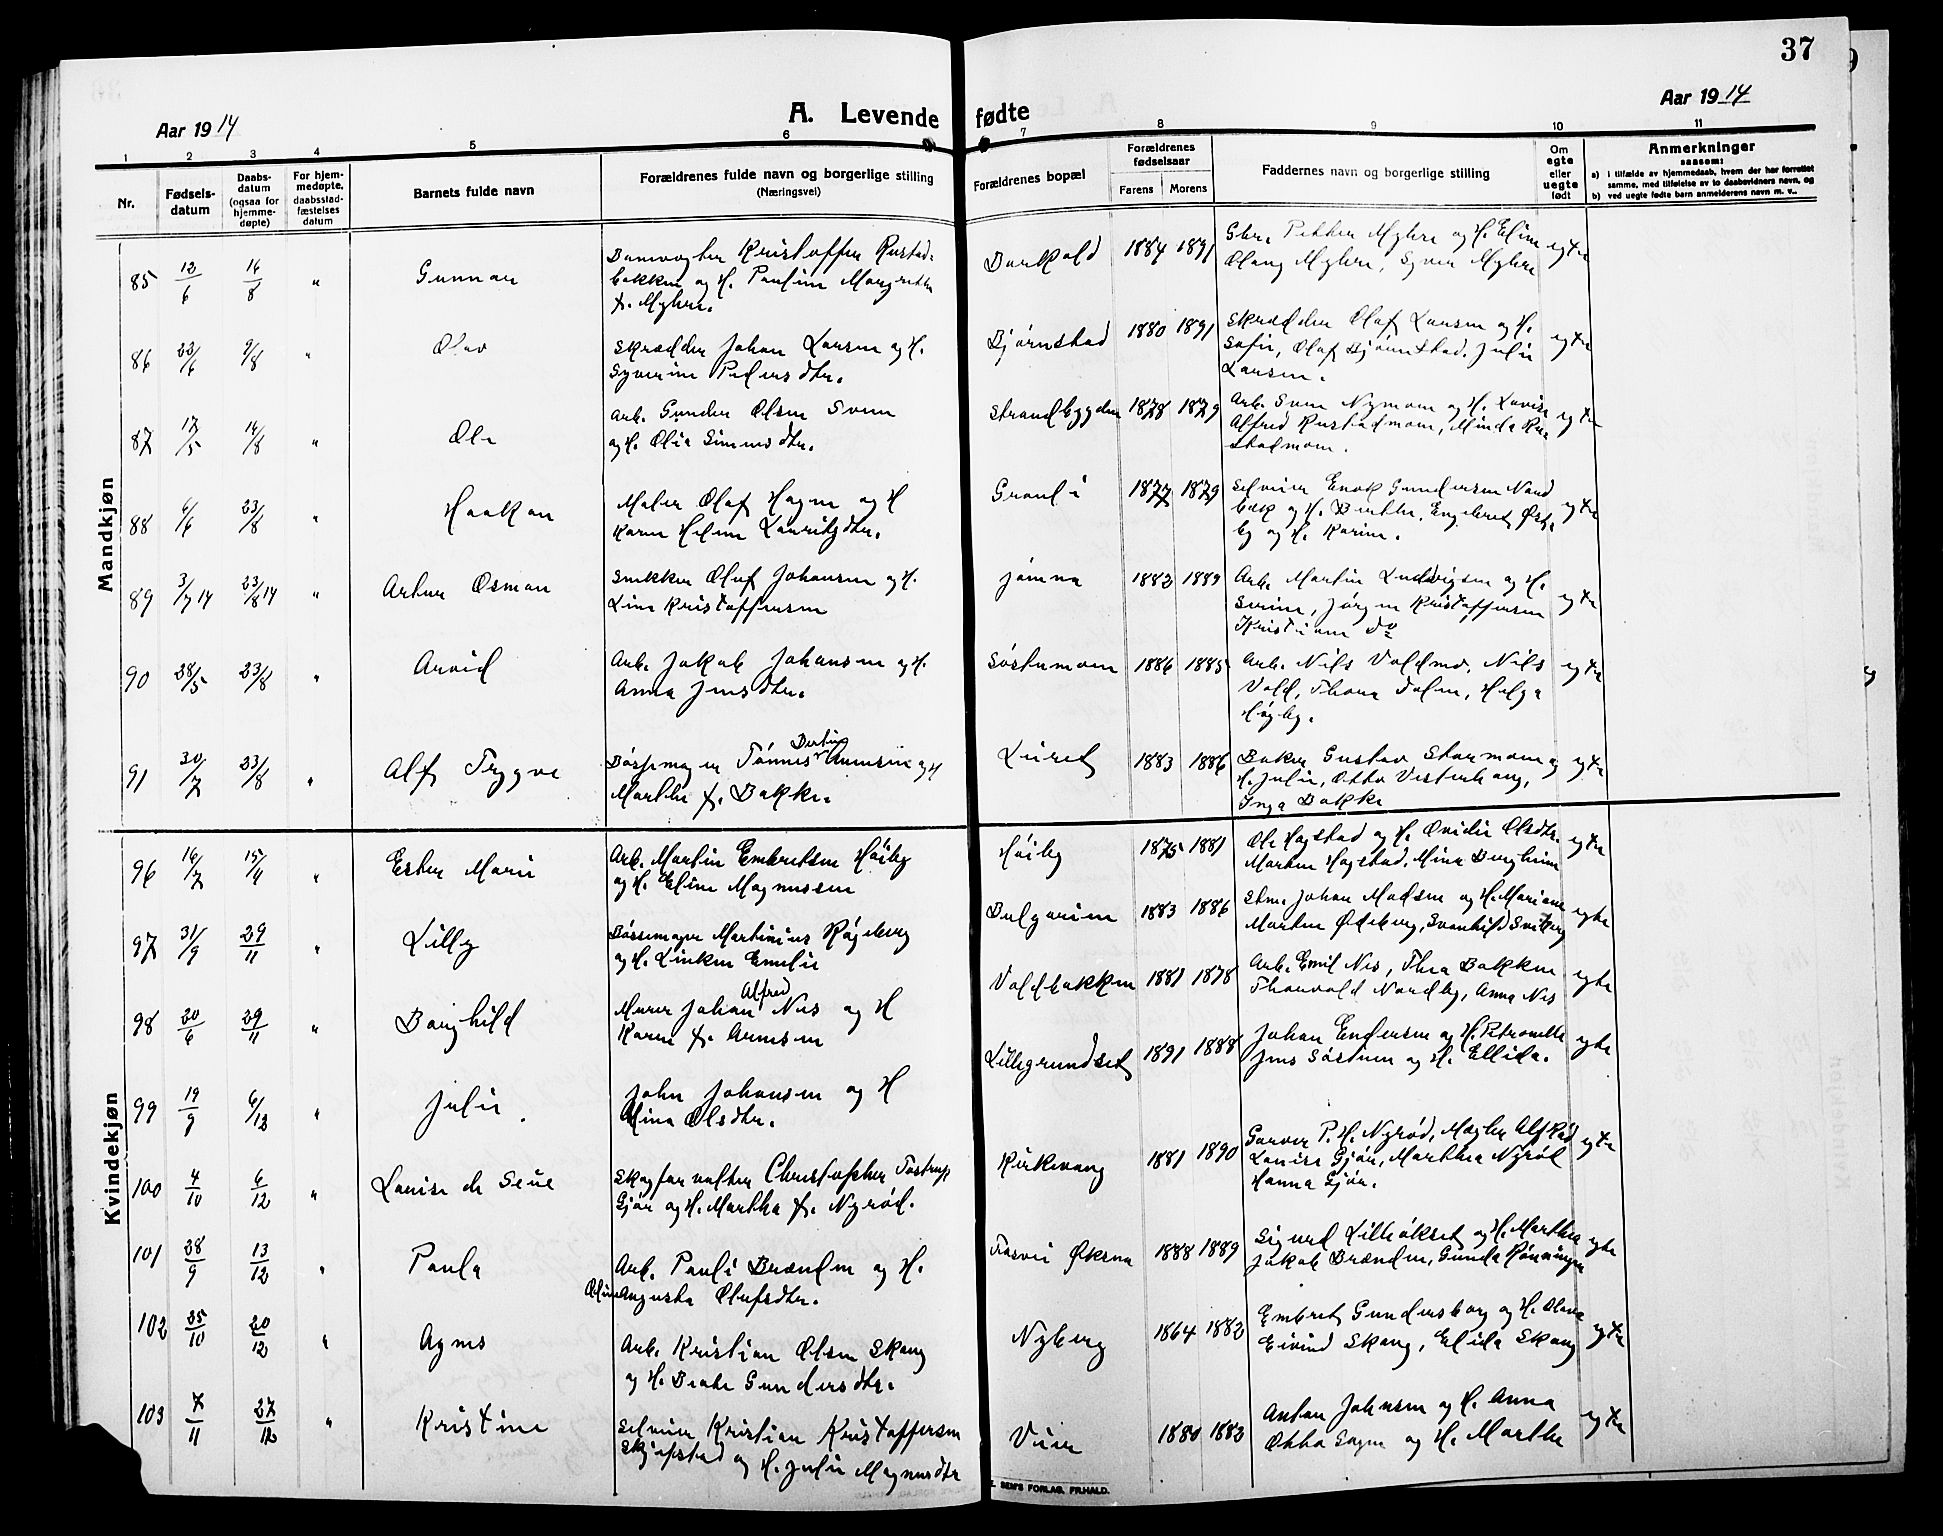 37
Aar 1914
A. Levende fødte
Aar 1914
1 2 3 4 5 6 7 8 9 10 11
Nr.
Fødsels-
datum
Daabs-
datum
(ogsaa for
hjemme-
døpte)
For hjem-
medøpte,
daabsstad-
fæstelses
datum
Barnets fulde navn
Forældrenes fulde navn og borgerlige stilling
(Næringsvei)
Forældrenes bopæl
Forældrenes
fødselsaar
Farens Morens
Faddernes navn og borgerlige stilling
Om
egte
eller
uegte
født
Anmerkninger
saasom:
a) i tilfælde av hjemmedaab, hvem der har forrettet
samme, med tilføielse av to daabsvidners navn, og
b) ved uegte fødte barn anmelderens navn m. v..
Mandkjøn
85 12/6 16/8 " Gunnar
Kristoffer Rustad-
bakken og H. Pauline Margrethe
f. Myhre.
1884 1891
Petter Myhre og H. Eline
Olaug Myhre, Syver Myhre
egte
86 23/6 9/8 " Olav
Skrædder Johan Larsen og H.
Syverine Pedersdtr.
Bjørnstad 1880 1891
Skrædder Olaf Larsen og H.
Sofie, Olaf Bjørnstad, Julie
Larsen.
egte
87 17/5 14/8 " Ole
Arb. Gunder Olsen Sveen
og H. Olia Simensdtr.
Strandbygden 1878 1879
Arb. Sven Nymoen og H. Lovise
Alfred Rustadmoen, Minda Ru-
stadmoen.
egte
88 6/6 23/8 " Haakon
Maler Olaf Hagen og H
Karen Helene Lauritzdtr.
Granli 1877 1879
Selveier Enok Gundersen Nord
bæk og H. Berthe, Engebret Øst-
by og H. Karine.
egte
89 3/7 14 23/8 14 " Artur Osman
Snekker Oluf Johansen og H.
Lina Kristoffersen
Jømna 1882 1889
Arb. Martin Ludvigsen og H.
Serine, Jørgen Kristoffersen
Kristiane do
egte
90 28/5 23/8 " Arvid
Arb. Jakob Johansen og H.
Anna Jensdtr.
Søstumoen 1886 1885
Arb. Nils Voldmo, Nils
Vold, Thora Dalen, Helga
Høgby.
egte
91 30/7 23/8 " Alf Trygve
Bertin
Bøssemager Tønnes Arnesen og H
Marthe f. Bakke.
1883 1886
Baker Gustav Stormoen og
H. Julie, Otto Vesterhaug,
Inga Bakke
egte
Kvindekjøn
96 16/7 15/4 " Ester Marie
Arb. Martin Embretsen Høiby
og H. Eline Magnussen
Høiby 1875 1881
Ole Hagstad og H. Ovidie Olsdtr.
Marten Hagstad, Mina Bergheim
egte
97 31/9 29/11 " Lilly
Bøssemager Martinius Røgeberg
og H. Emelie
Bulgarien 1883 1886
Johan Madsen og H. Mariane
Marten Ødeberg, Svanhild
egte
98 20/6 29/11 " Borghild
Alfred
Murer Johan Næs og H
Karen f. Arnesen
Voldbakken 1881 1878
Arb. Emil Nes, Thea Bakken
Thorvald Nordby, Anna Nes
egte
99 19/9 6/12 " Julie.
John Johansen og H
Alina Olsdtr.
Lillegrundset 1891 1888
Johan Endersen og H. Petronelle
Jens Søstuen og H. Ellida.
egte
100 4/10 6/12 " Louise de Seue
Skogforvalter Christopher Tostrup
Gjør og H. Martha f. Nyrød.
Kirkevang 1881 1890
Garver P. H. Nyrød, Mægler Alf
Louise Gjør, Marthea Nyrød
Hanna Gjør.
egte
101 28/9 13/12 " Paula
Arb. Pauli Brænden og H.
Oline Augusta Olufsdtr.
Øksna 1888 1889
Sigurd Lilleøkset og H. Marthea
Jakob Brænden, Gunda Rønningen
egte
102 25/10 20/12 " Agnes
Arb. Kristian Olsen Skaug
og H. Beate Gundersdtr.
Nyberg 1864 1882
Embret Gundersborg og H. Olava
Eivind Skaug, Elida Skaug
egte
103 7/11 27/12 " Kristine
Selveier Kristian Kristoffersen
Skjefstad og H. Julie Magnusdtr
Veien 1880 1883
Anton Johnsen og H. Anna
Otto Sagen og H. Marthe
egte
SEM'S FORLAG, FR.HALD.